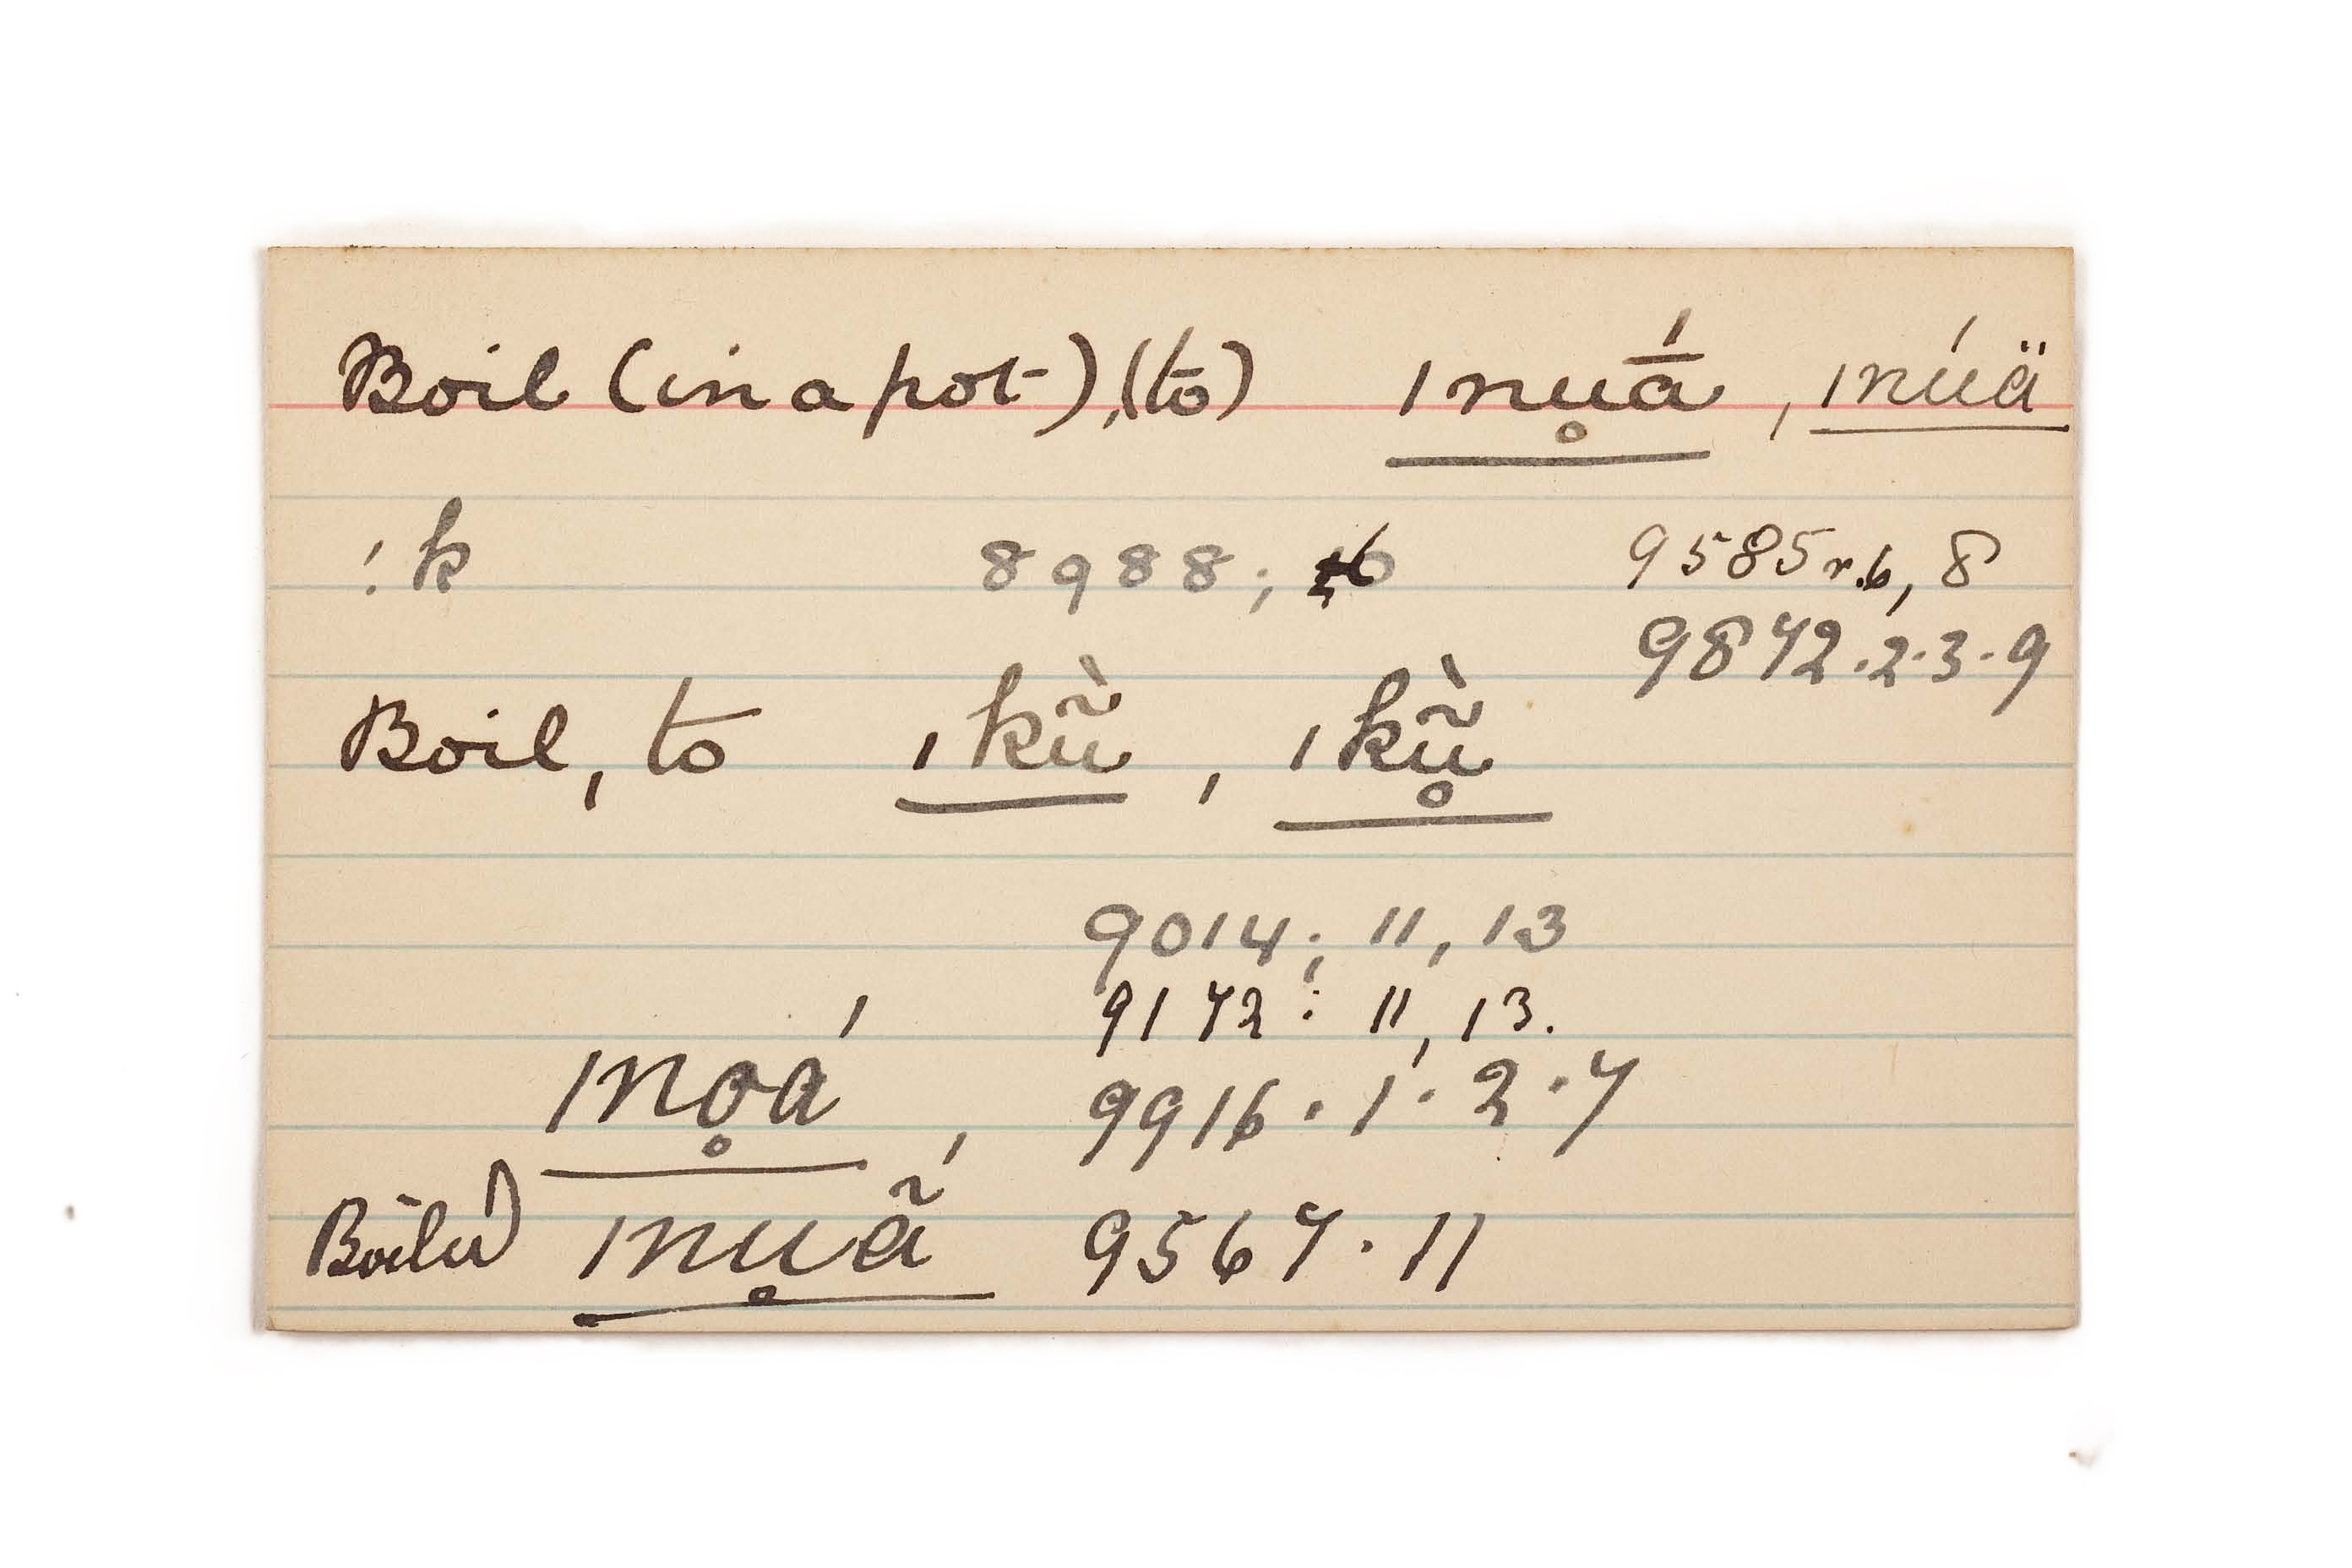 Boil (in a pot), (to) ǀnu̥ā́, ǀnúä
!k 8988; 6 9585 r.6, 8
9872.2.3.9
Boil, to ǀkũ̀, ǀkũ̥̀
9014; 11, 13
9172: 11, 13.
ǀno̥á, 9916.1.2.7
Boiled ǀnu̥ã́ 9567.11